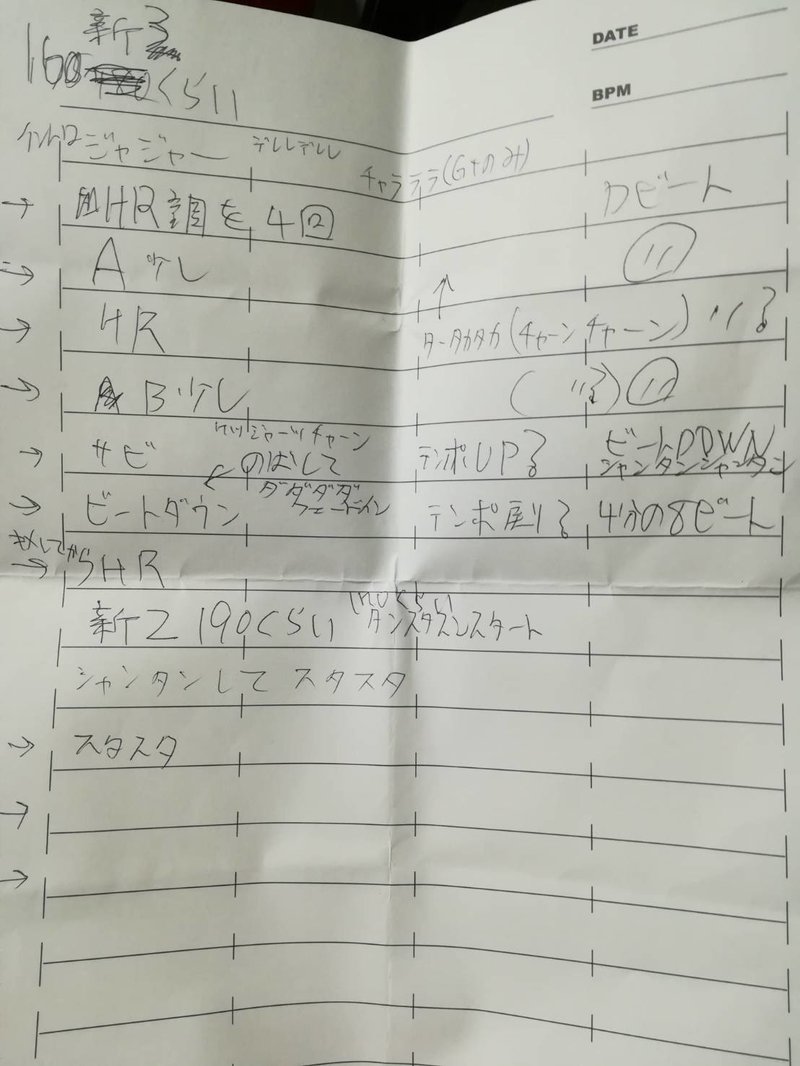 新3
DATE
160 くらい
BPM
イントロ ジャジャー デレレデレレ チャラララ(Gtのみ)
→ HR調を4回 Dビート
→ A 少し 〃
→ HR ↑ タータカタカ(チャーンチャーン) 〃る
→ B少し (〃る) 〃
→ サビ のばして テンポUPる ビートDOWN
シャンタンシャンタン
→ ビートダウン ダダダダ フェードイン テンポ戻る 4分の8ビート
→ SHR
新2 190くらい タンスタスレスタート
シャンタンして スタスタ
→ スタスタ
→
→